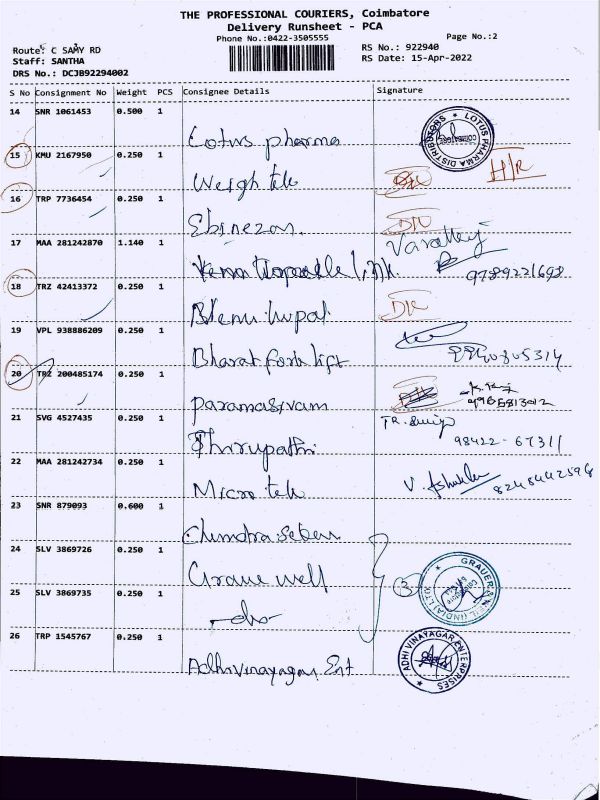 THE PROFESSIONAL COURIERS, Coimbatore
Delivery Runsheet - PCA
Phone No.:0422-3505555
Page No.:2
Route: C SAMY RD
RS No.: 922940
Staff: SANTHA
RS Date: 15-Apr-2022
DRS No.: DCJB92294002
S No Consignment No Weight PCS Consignee Details Signature
14 SNR 1061453 0.500 1
Lotus pharma
LOTUS PHARMA DISTRIBUTORS
COIMBATORE
15 KMU 2167950 0.250 1
Weigh tek
H/R
16 TRP 7736454 0.250 1
Ebinezar.
17 MAA 281242870 1.140 1
9789221698
18 TRZ 42413372 0.250 1
19 VPL 938886209 0.250 1
Bharat fork lift
9940805314
20 TRZ 200485174 0.250 1
Paramasivam
21 SVG 4527435 0.250 1
Thirupathi
98422-67311
22 MAA 281242734 0.250 1
Micro tek
23 SNR 879093 0.600 1
24 SLV 3869726 0.250 1
3
25 SLV 3869735 0.250 1
-do-
26 TRP 1545767 0.250 1
Adhivinayagar Ent
ADHI VINAYAGAR ENTERPRISES